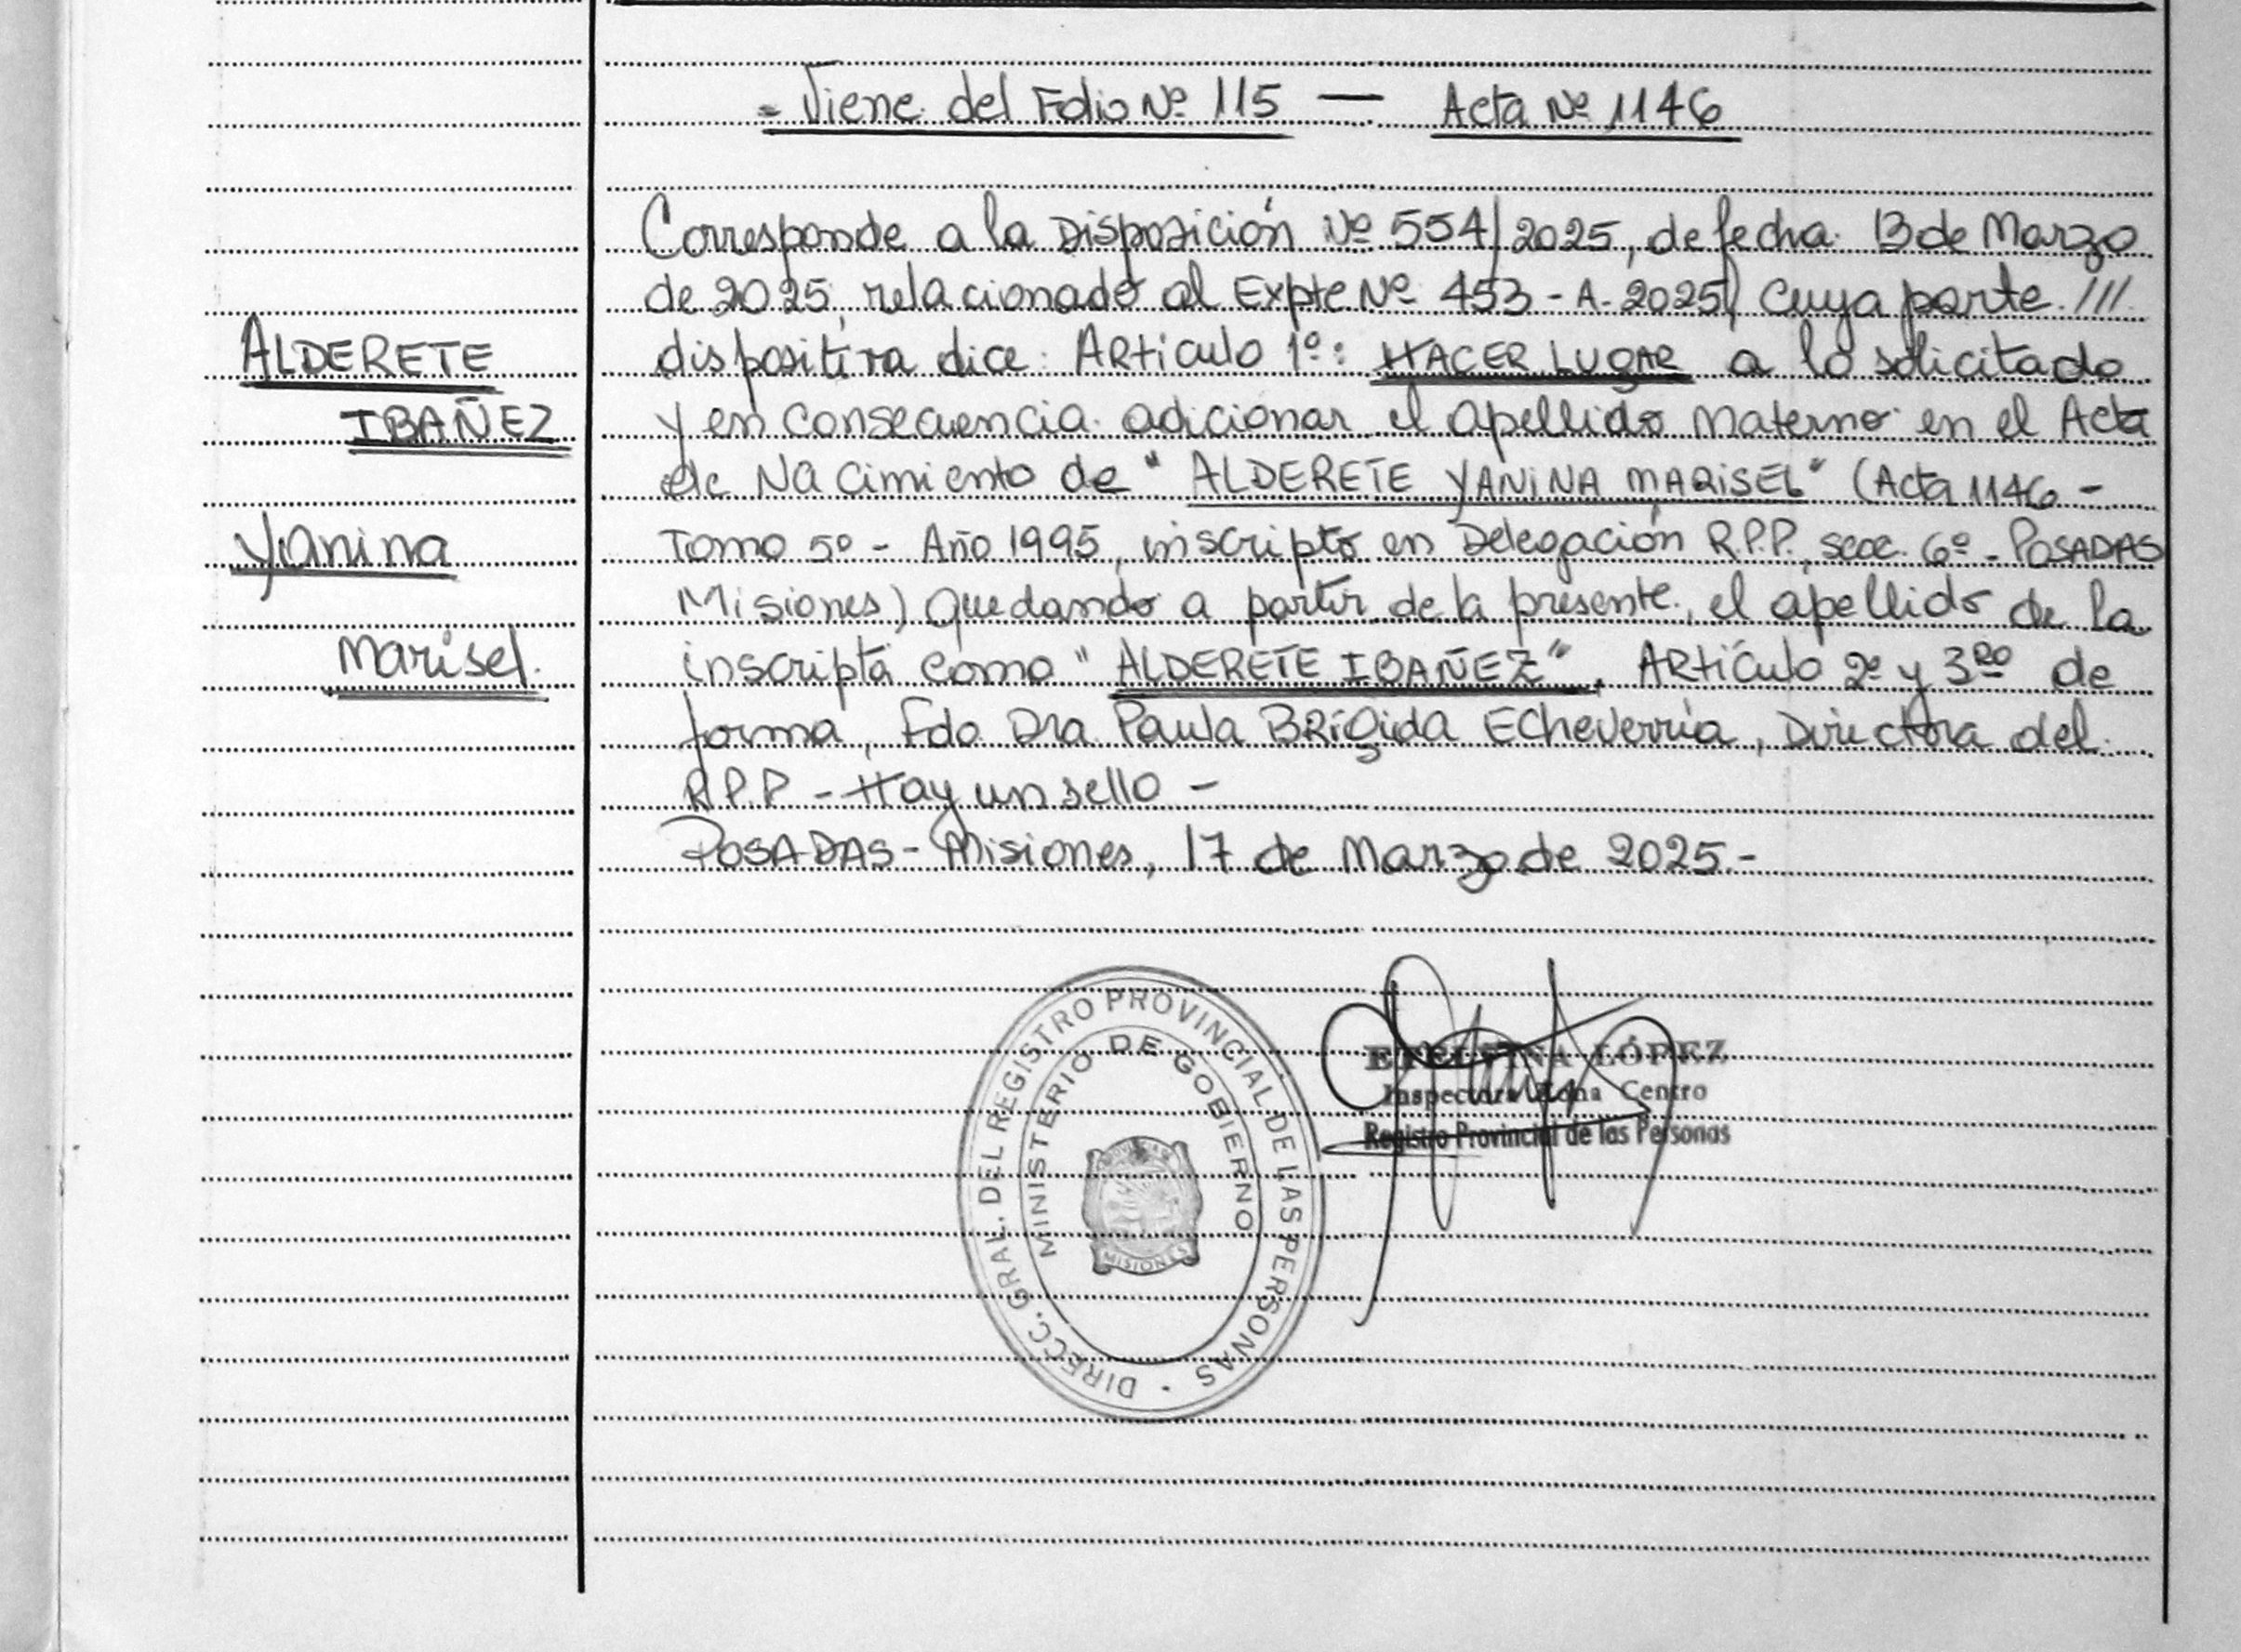 - Viene del Folio Nº 115 — Acta Nº 1146
Corresponde a la Disposición Nº 554/2025, de fecha 13 de Marzo
de 2025, relacionado al Expte Nº 453-A-2025) cuya parte ///
dispositiva dice: Artículo 1º: HACER LUGAR a lo solicitado
y en consecuencia adicionar el apellido Materno en el Acta
de Nacimiento de "ALDERETE YANINA MARISEL" (Acta 1146 -
Tomo 5º - Año 1995, inscripto en Delegación R.P.P., secc. 6º - POSADAS
Misiones) Quedando a partir de la presente, el apellido de la
inscripta como "ALDERETE IBAÑEZ", Artículo 2º y 3RO de
forma, Fdo Dra Paula Brígida Echeverría, Directora del
R.P.P - Hay un sello -
POSADAS - Misiones, 17 de Marzo de 2025.-
ALDERETE
IBAÑEZ
Yanina
Marisel.
DIRECC. GRAL. DEL REGISTRO PROVINCIAL DE LAS PERSONAS
MINISTERIO DE GOBIERNO
MISIONES
LÓPEZ
Inspectora Zona Centro
Registro Provincial de las Personas